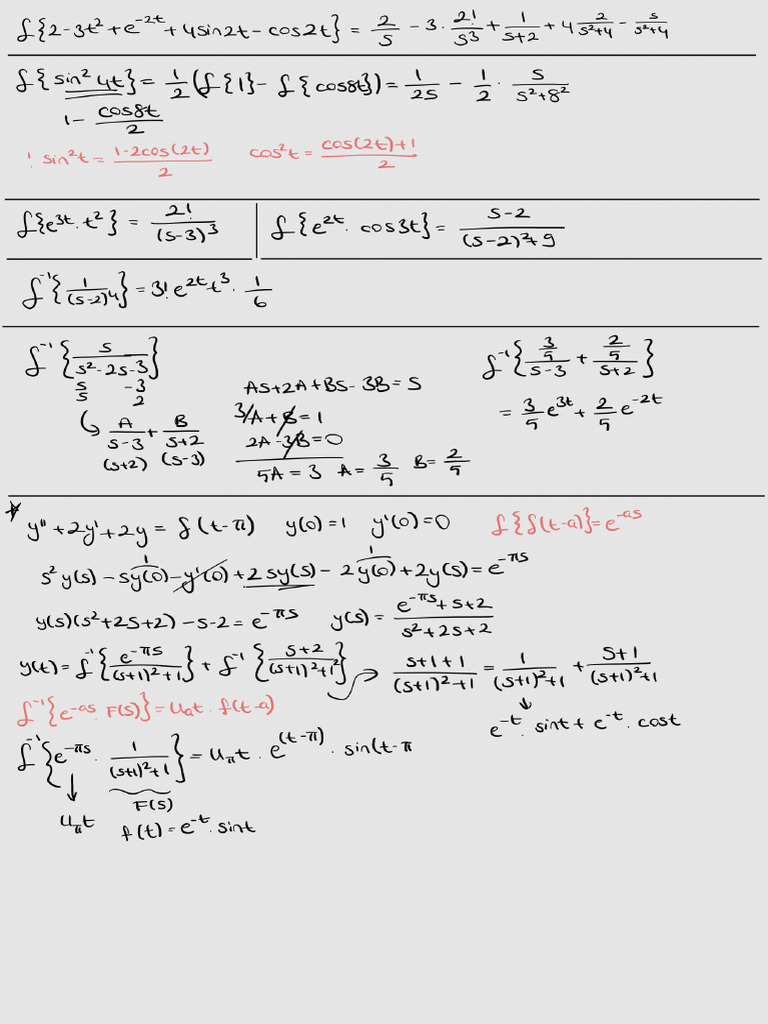 ℒ{2-3t²+e^{-2t}+4sin2t-cos2t} = 2/s - 3·2!/s³ + 1/(s+2) + 4 2/(s²+4) - s/(s²+4)
ℒ{sin²4t} = 1/2(ℒ{1}-ℒ{cos8t}) = 1/(2s) - 1/2 · s/(s²+8²)
1 - cos8t/2
! sin²t = (1-2cos(2t))/2 cos²t = (cos(2t)+1)/2
ℒ{e^{3t}·t²} = 2!/(s-3)³ ℒ{e^{2t}·cos3t} = (s-2)/((s-2)²+9)
ℒ⁻¹{1/(s-2)⁴} = 3! e^{2t} t³ · 1/6
ℒ⁻¹{s/(s²-2s-3)} ℒ⁻¹{(3/5)/(s-3) + (2/5)/(s+2)}
s -3
s 2
As+2A+Bs-3B=s
A/(s-3) + B/(s+2) 3/A+B=1 = 3/5 e^{3t} + 2/5 e^{-2t}
(s+2) (s-3) 2A-3B=0
5A=3 A=3/5 B=2/5
* y''+2y'+2y = δ(t-π) y(0)=1 y'(0)=0 ℒ{δ(t-a)}=e^{-as}
1 1
s²y(s)-sy(0)-y'(0)+2sy(s)-2y(0)+2y(s)=e^{-πs}
y(s)(s²+2s+2)-s-2=e^{-πs} y(s)=(e^{-πs}+s+2)/(s²+2s+2)
y(t)=ℒ⁻¹{e^{-πs}/((s+1)²+1)}+ℒ⁻¹{(s+2)/((s+1)²+1²)} → (s+1+1)/((s+1)²+1) = 1/((s+1)²+1) + (s+1)/((s+1)²+1)
ℒ⁻¹{e^{-as}·F(s)}=uₐt·f(t-a)
↓
e^{-t}·sint+e^{-t}·cost
ℒ⁻¹{e^{-πs}·1/((s+1)²+1)}=u_πt·e^{(t-π)}·sin(t-π
↓ F(s)
u_πt f(t)=e^{-t}·sint